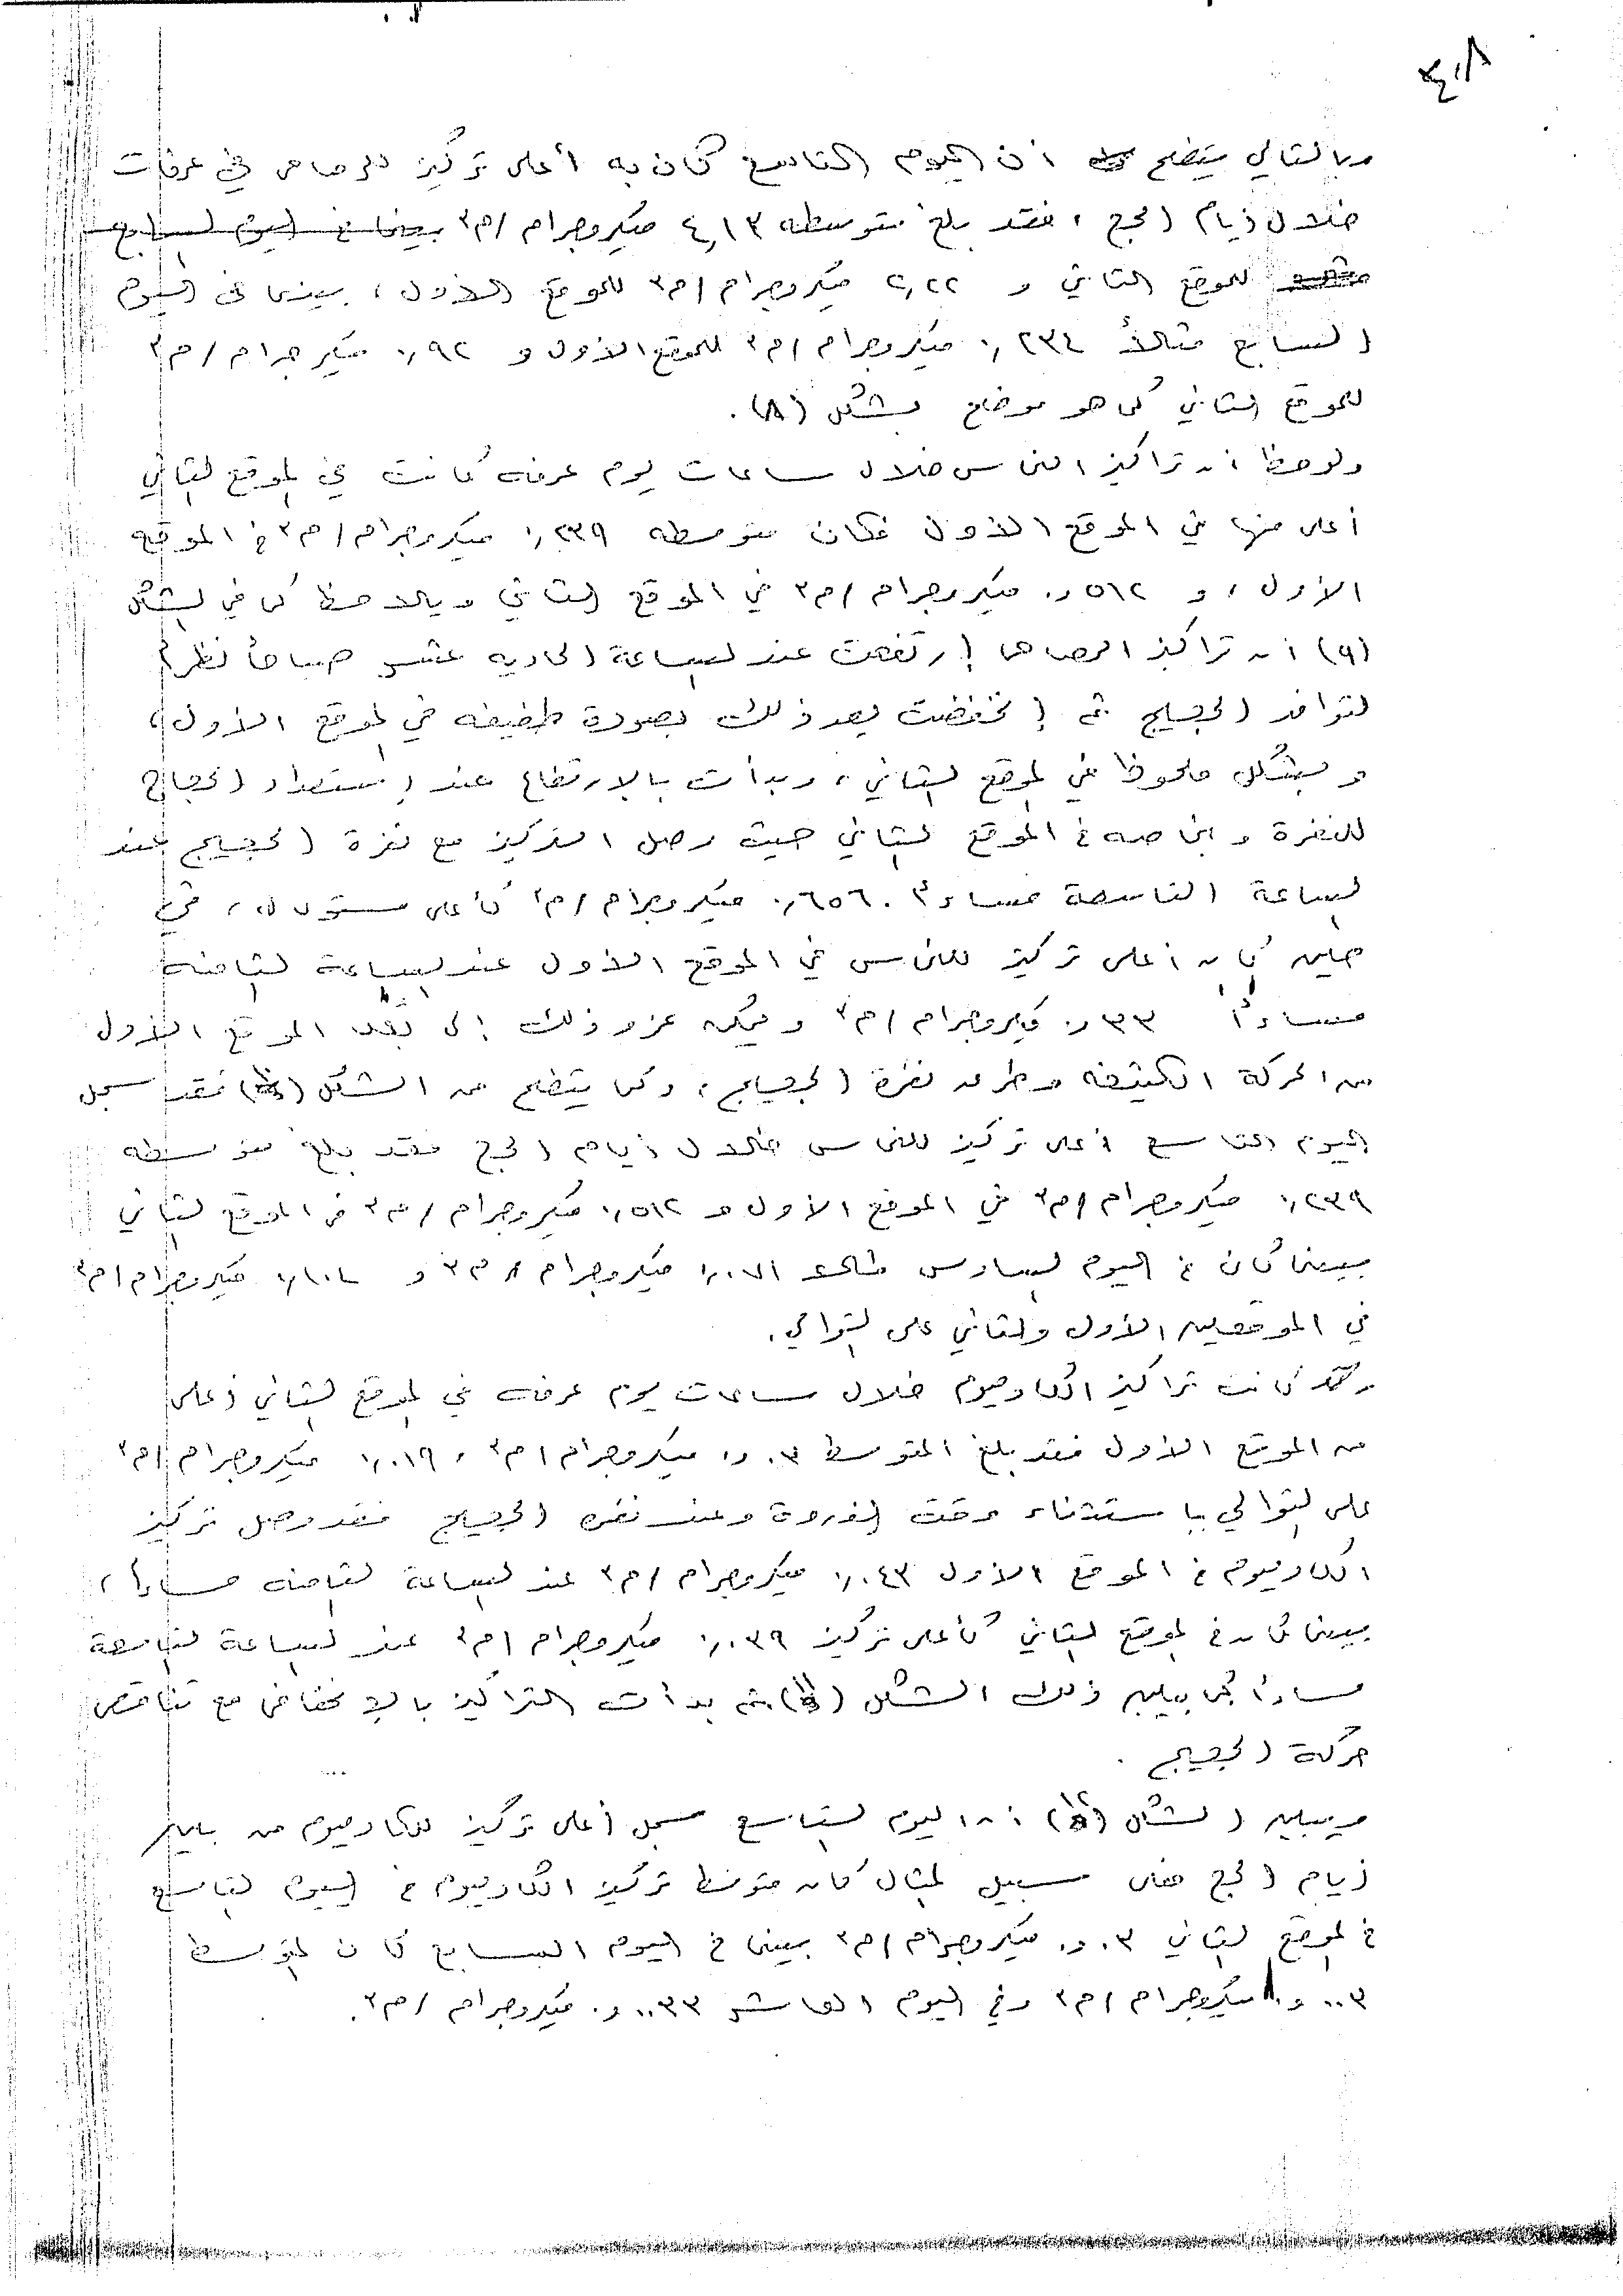 وبالتالي يتضح أن اليوم التاسع كان به أعلى تركيز للرصاص في عرفات
خلال أيام الحج ، فقد بلغ متوسطه ٤,١٣ ميكروجرام /م٣ بينما في اليوم السابع
للموقع الثاني و ٢,٢٢ ميكروجرام /م٣ للموقع الأول ، بينما في اليوم
السابع مثلاً ٠,٢٣٤ ميكروجرام /م٣ للموقع الأول و ٠,٩٢ ميكرجرام /م٣
للموقع الثاني كما هو موضح بشكل (٨) .
ولوحظ أن تراكيز النحاس خلال ساعات يوم عرفه كانت في الموقع الثاني
أعلى منها في الموقع الأول فكان متوسطه ٠,٢٣٩ ميكروجرام /م٣ في الموقع
الأول ، و ٠,٥١٢ ميكروجرام /م٣ في الموقع الثاني ويلاحظ كما في الشكل
(٩) أن تراكيز الرصاص إرتفعت عند الساعة الحاديه عشر صباحاً نظراً
لتوافد الحجيج ثم إنخفضت بعد ذلك بصورة طفيفه في الموقع الأول ،
وبشكل ملحوظ في الموقع الثاني ، وبدأت بالإرتفاع عند إستعداد الحجاج
للنفرة وبخاصه في الموقع الثاني حيث وصل التركيز مع نفرة الحجيج عند
الساعة التاسعة مساءً ٠,٦٥٦ ميكروجرام /م٣ كأعلى مستوى له ، في
حين كان أعلى تركيز للنحاس في الموقع الأول عند الساعة الثامنه
مساءاً ٠,٣٣ ميكروجرام /م٣ ويمكن عزو ذلك إلى بُعد الموقع الأول
من الحركة الكثيفه وطرق نفرة الحجيج ، وكما يتضح من الشكل ( ) فقد سجل
اليوم التاسع أعلى تركيز للنحاس خلال أيام الحج فقد بلغ متوسطه
٠,٢٣٩ ميكروجرام /م٣ في الموقع الأول و ٠,٥١٢ ميكروجرام /م٣ في الموقع الثاني
بينما كان في اليوم السادس مثلاً ٠,٠٧١ ميكروجرام /م٣ و ميكروجرام /م٣
في الموقعين الأول والثاني على التوالي .
وقد كانت تراكيز الكادميوم خلال ساعات يوم عرفه في الموقع الثاني أعلى
من الموقع الأول فقد بلغ المتوسط ٠,٠٣ ميكروجرام /م٣ ، ٠,٠١٩ ميكروجرام /م٣
على التوالي باستثناء وقت الذروة وعند نفرة الحجيج فقد وصل تركيز
الكادميوم في الموقع الأول ٠,٠٤٣ ميكروجرام /م٣ عند الساعة الثامنه مساءاً ،
بينما كان في الموقع الثاني كأعلى تركيز ٠,٠٣٩ ميكروجرام /م٣ عند الساعة التاسعة
مساءاً كما يبين ذلك الشكل (١١) ثم بدأت التراكيز بالإنخفاض مع تناقص
حركة الحجيج .
ويبين الشكل (١٢) أن اليوم التاسع سجل أعلى تركيز للكادميوم من بين
أيام الحج فعلى سبيل المثال كان متوسط تركيز الكادميوم في اليوم التاسع
في الموقع الثاني ٠,٠٣ ميكروجرام /م٣ بينما في اليوم السابع كان المتوسط
٠,٠٠٣ ميكروجرام /م٣ وفي اليوم العاشر ٠,٠٠٣٣ ميكروجرام /م٣ .